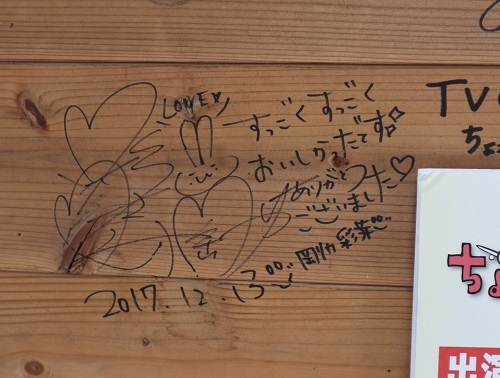 LOVE
すっごくすっごく
おいしかったです
ありがとう
ございました
剛力 彩芽
2017.12.13
TV
ちょ
ち
出演